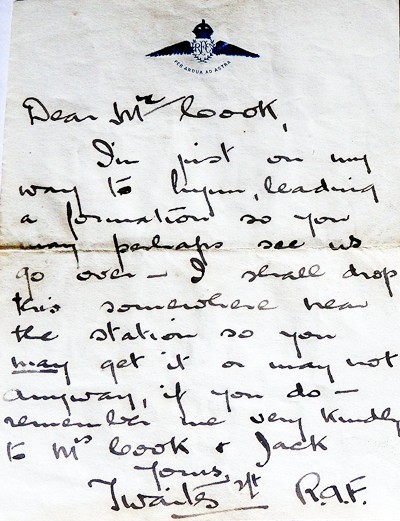 RFC
PER ARDUA AD ASTRA
Dear Mr Cook,
I'm just on my
way to Lynn, leading
a formation so you
may perhaps see us
go over - I shall drop
this somewhere near
the station so you
may get it or may not
Anyway, if you do -
remember me very kindly
to Mrs Cook & Jack
Yours,
Twaites Lt R.A.F.